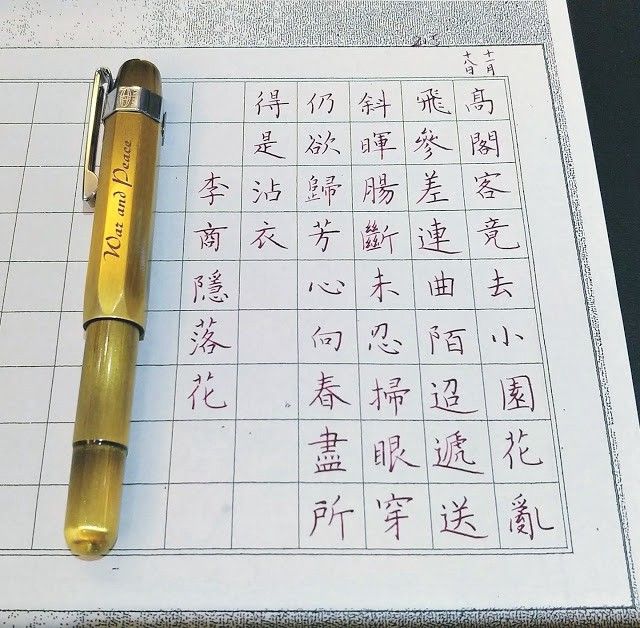 十一月
十八日
高閣客竟去小園花亂
飛參差連曲陌迢遞送
斜暉腸斷未忍掃眼穿
仍欲歸芳心向春盡所
得是沾衣
李商隱落花
War and Peace